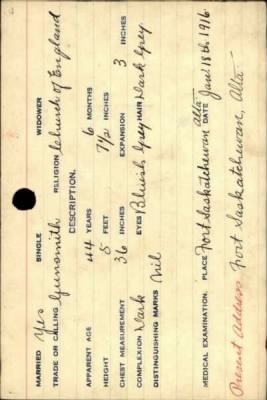 MARRIED Yes SINGLE WIDOWER
TRADE OR CALLING Gunsmith RELIGION Church of England
DESCRIPTION.
APPARENT AGE 44 YEARS 6 MONTHS
HEIGHT 5 FEET 7½ INCHES
CHEST MEASUREMENT 36 INCHES EXPANSION 3 INCHES
COMPLEXION Dark EYES Bluish Grey HAIR Dark Grey
DISTINGUISHING MARKS Nil
MEDICAL EXAMINATION. PLACE Fort Saskatchewan Alta DATE Jan. 18th 1916
Present Address Fort Saskatchewan, Alta.